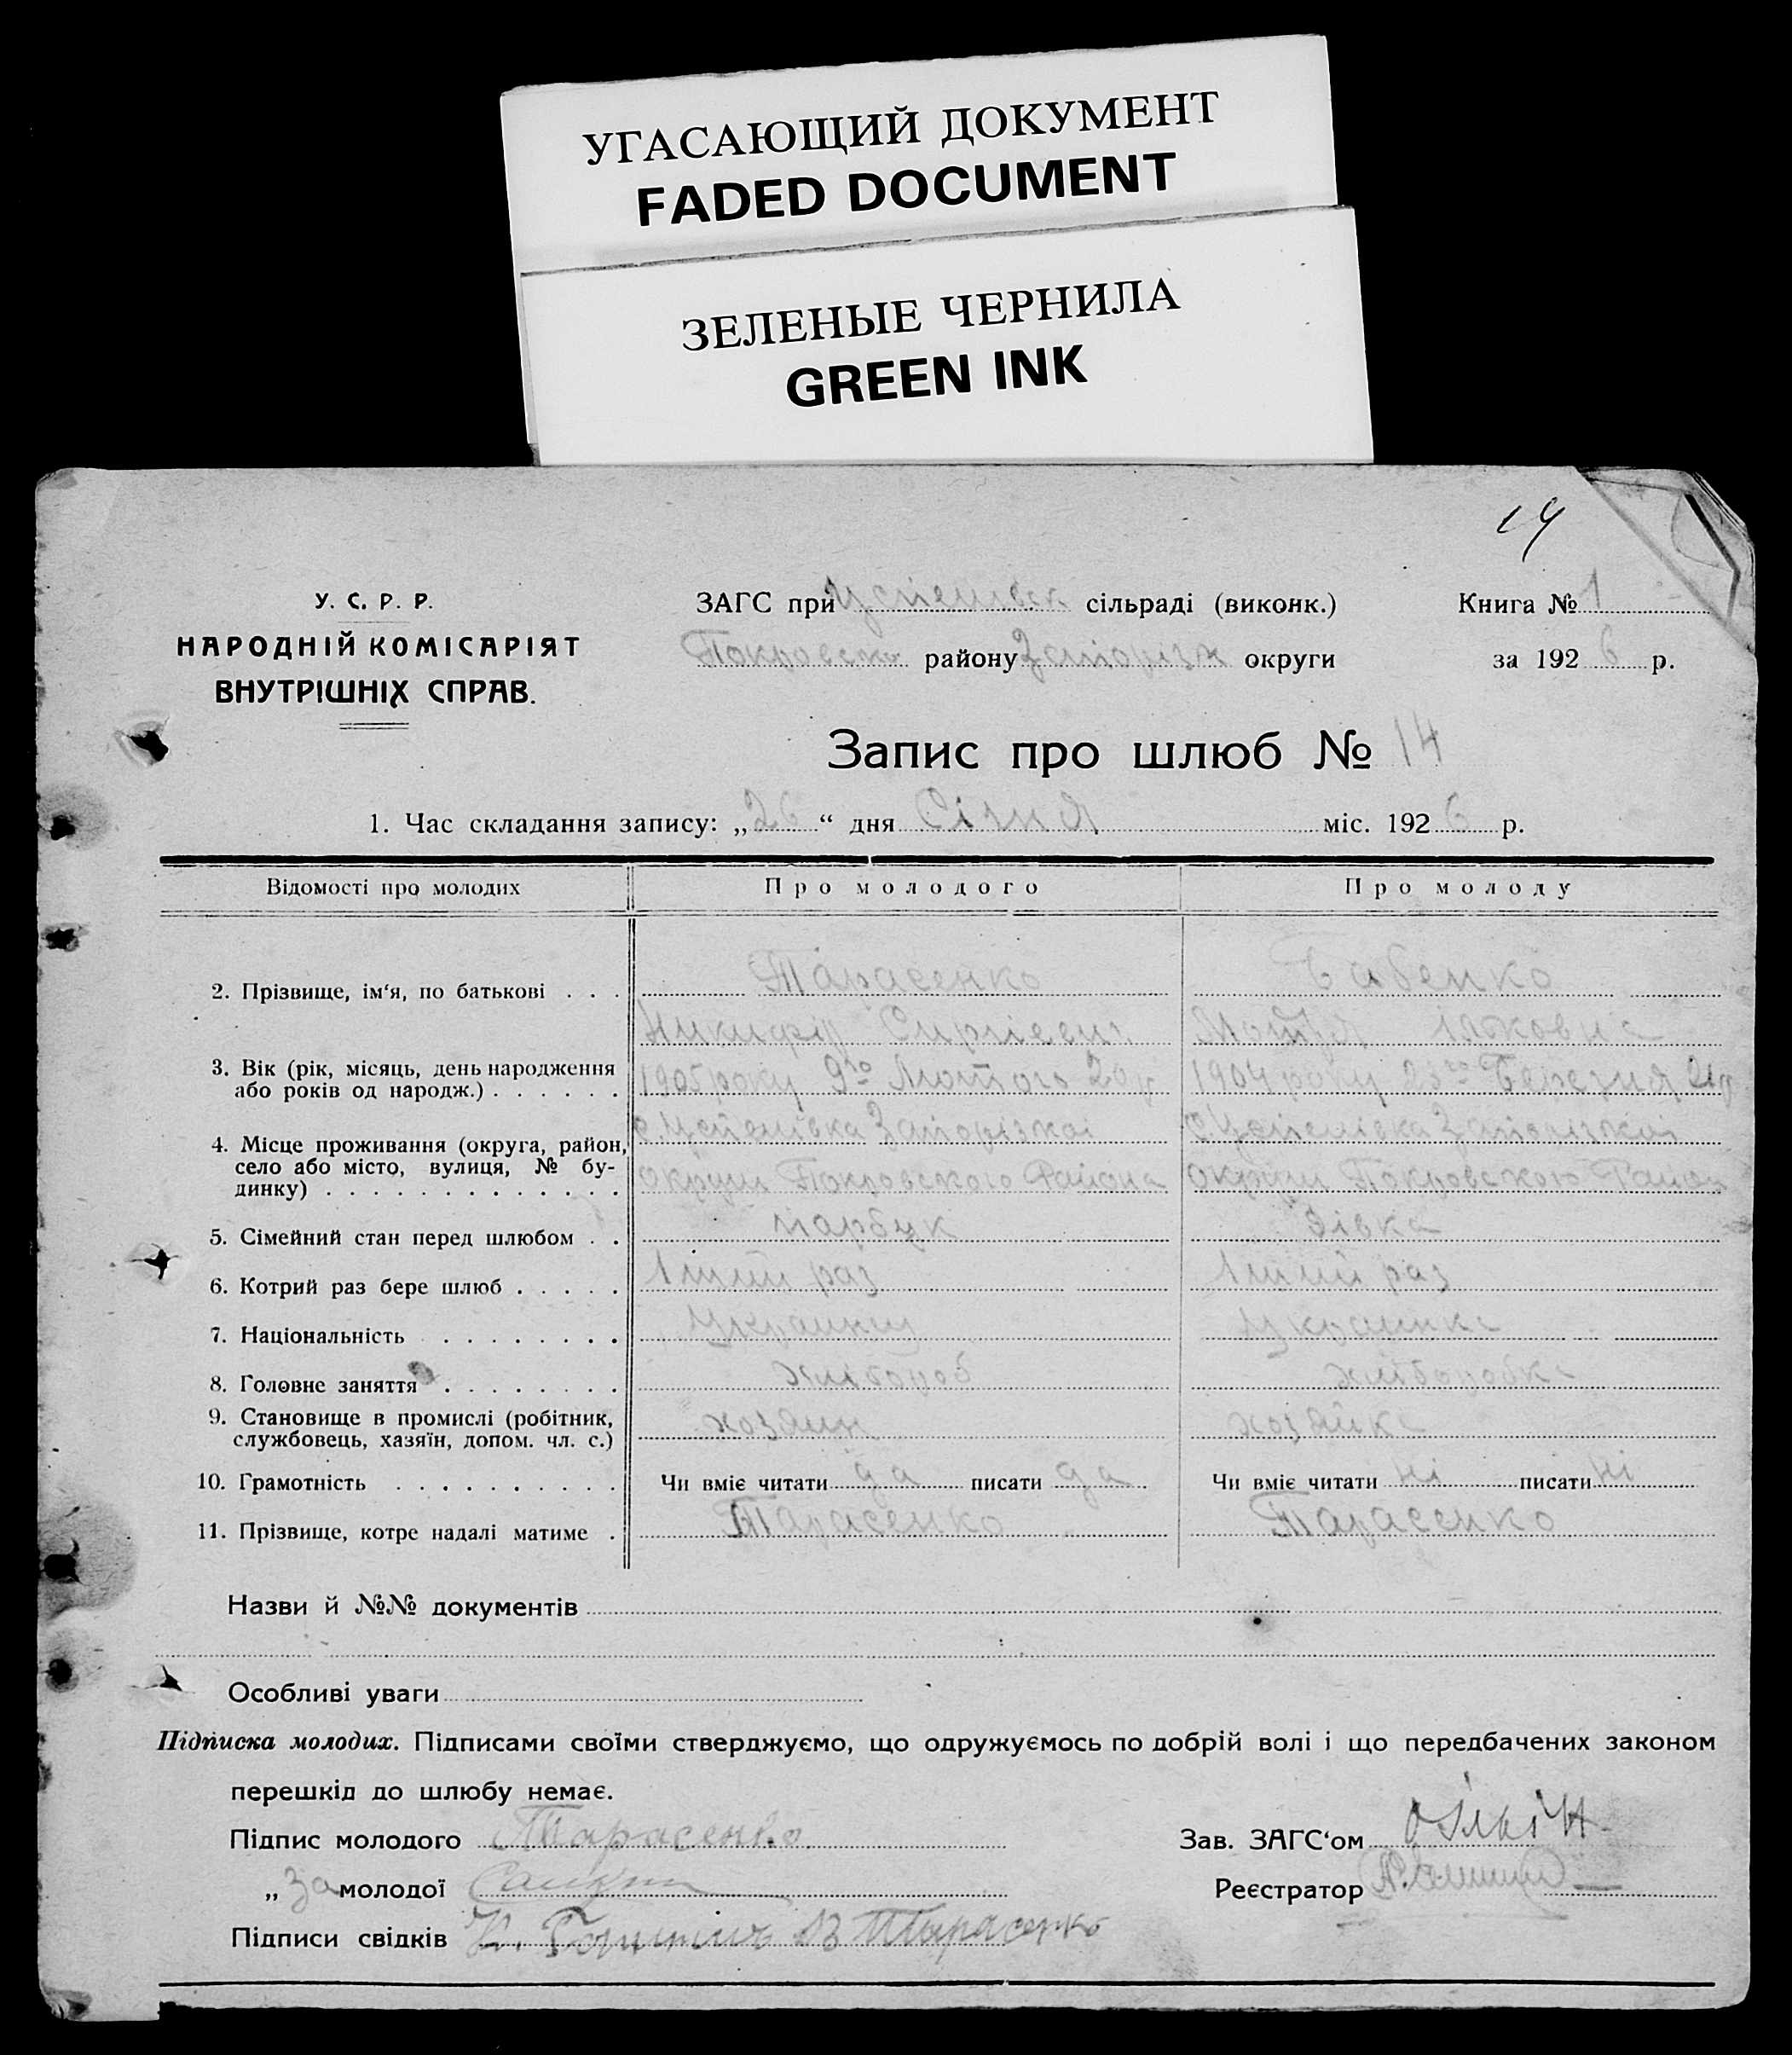 УГАСАЮЩИЙ ДОКУМЕНТ
FADED DOCUMENT
ЗЕЛЕНЫЕ ЧЕРНИЛА
GREEN INK
14
У. С. Р. Р.
НАРОДНІЙ КОМІСАРІЯТ
ВНУТРІШНІХ СПРАВ.
ЗАГС при Успенівск сільраді (виконк.)
Покровско району Запорізк округи
Книга № 1
за 1926 р.
Запис про шлюб № 14
1. Час складання запису: „26“ дня Січня міс. 1926 р.
Відомості про молодих
Про молодого
Про молоду
2. Прізвище, ім‘я, по батькові . . .
Тарасенко
Никифір Сиргієвич
Бабенко
Мотря
3. Вік (рік, місяць, день народження
або років од народж.) . . . . . .
1905 року 9го Лютого 20 р
1904 року 23го Березня 21 р
4. Місце проживання (округа, район,
село або місто, вулиця, № бу-
динку) . . . . . . . . . . . . .
с. Успенівка Запорізкої
округи Покровского Района
с. Успенівка Запорізкої
округи Покровского Район
5. Сімейний стан перед шлюбом . .
парубук
дівка
6. Котрий раз бере шлюб . . . . .
1ший раз
1ший раз
7. Національність . . . . . . . .
Украинец
Украинка
8. Головне заняття . . . . . . . .
хлібороб
хліборобка
9. Становище в промислі (робітник,
службовець, хазяїн, допом. чл. с.)
хозяин
хозяйка
10. Грамотність . . . . . . . . . .
Чи вміє читати да писати да
Чи вміє читати ні писати ні
11. Прізвище, котре надалі матиме .
Тарасенко
Тарасенко
Назви й №№ документів
Особливі уваги
Підписка молодих. Підписами своїми стверджуємо, що одружуємось по добрій волі і що передбачених законом
перешкід до шлюбу немає.
Підпис молодого Тарасенко
Зав. ЗАГС‘ом
„ За молодої
Реєстратор
Підписи свідків К. В Тарасенко